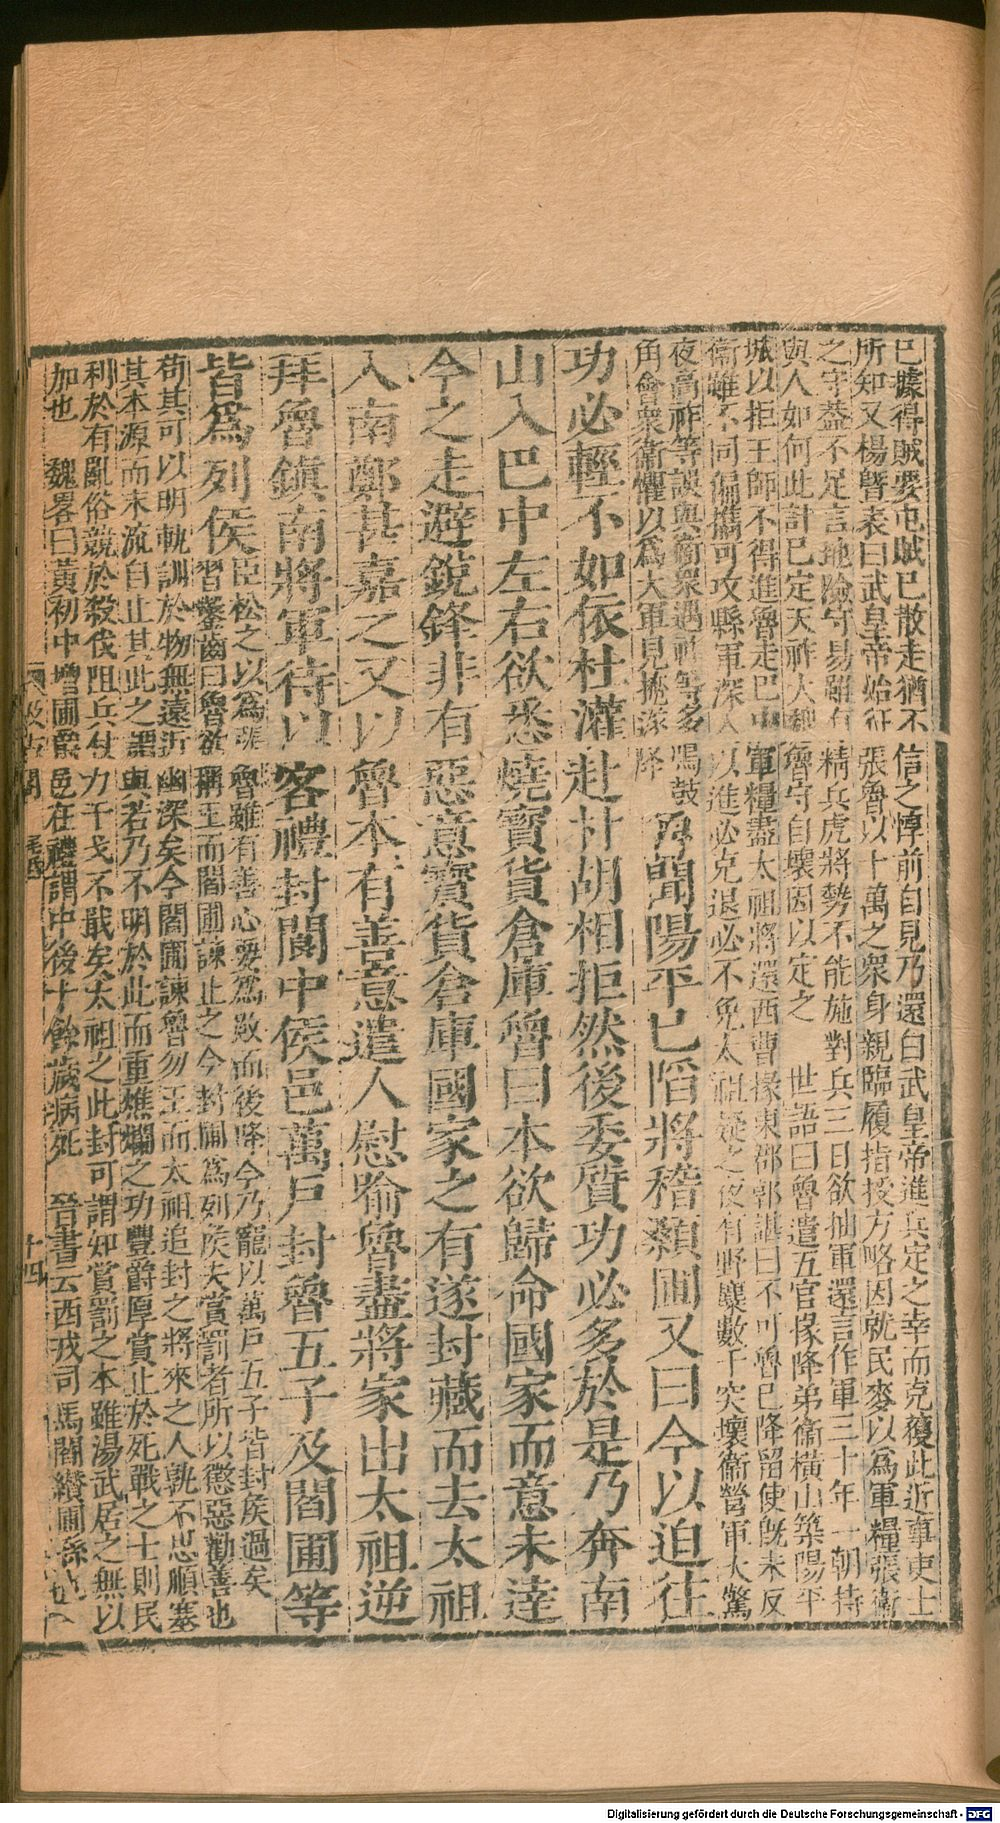 已據得賊要屯賊已散走猶不信之惇前自見乃還白武皇帝進兵定之幸而克獲此近事吏士
所知又楊暨表曰武皇帝始征張魯以十萬之衆身親臨履指授方略因就民麥以爲軍糧張衛
之守蓋不足言地險守易雖有精兵虎將勢不能施對兵三日欲抽軍還言作軍三十年一朝持
與人如何此計已定天祚大魏魯守自壞因以定之　世語曰魯遣五官掾降弟衛橫山築陽平
城以拒王師不得進魯走巴中軍糧盡太祖將還西曹掾東郡郭諶曰不可魯已降留使旣未反
衛雖不同偏攜可攻縣軍深入以進必克退必不免太祖疑之夜有野麋數千突壞衛營軍大驚
夜高祚等誤與衛衆遇祚等多鳴鼓
角會衆衛懼以爲大軍見掩遂降
魯聞陽平已陷將稽顙圃又曰今以迫往
功必輕不如依杜濩赴朴胡相拒然後委質功必多於是乃奔南
山入巴中左右欲悉燒寶貨倉庫魯曰本欲歸命國家而意未達
今之走避銳鋒非有惡意寶貨倉庫國家之有遂封藏而去太祖
入南鄭甚嘉之又以魯本有善意遣人慰喻魯盡將家出太祖逆
拜魯鎭南將軍待以客禮封閬中侯邑萬戶封魯五子及閻圃等
皆爲列侯
臣松之以爲張魯雖有善心要爲敗而後降今乃寵以萬戶五子皆封侯過矣
習鑿齒曰魯欲稱王而閻圃諫止之今封圃爲列侯夫賞罰者所以懲惡勸善也
苟其可以明軌訓於物無遠近幽深矣今閻圃諫魯勿王而太祖追封之將來之人孰不思順塞
其本源而末流自止其此之謂與若乃不明於此而重燋爛之功豐爵厚賞止於死戰之士則民
利於有亂俗競於殺伐阻兵仗力干戈不戢矣太祖之此封可謂知賞罰之本雖湯武居之無以
加也　魏畧曰黃初中增圃爵邑在禮請中後十餘歲病死　晉書云西戎司馬閻纘圃孫也
汲古閣　毛氏
十四
Digitalisierung gefördert durch die Deutsche Forschungsgemeinschaft - DFG